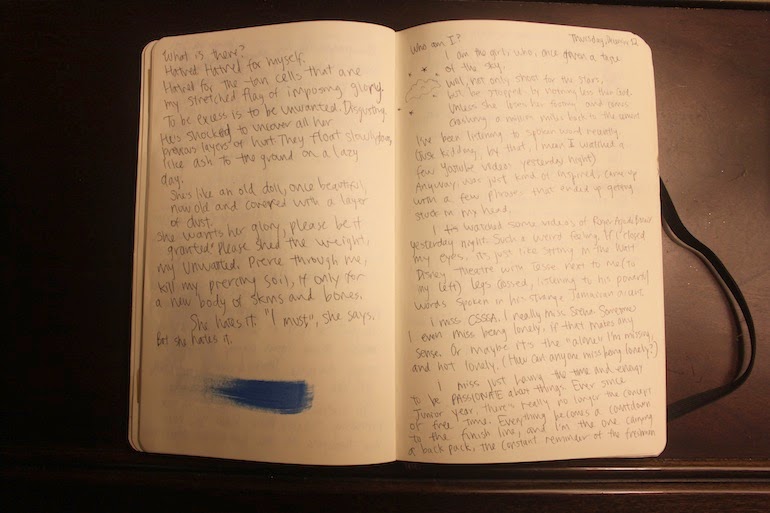 What is there?
Hatred. Hatred for myself.
Hatred for the tan cells that are
my stretched flag of imposing glory.
To be excess is to be unwanted. Disgusting.
He's shocked to uncover all her
previous layers of hurt. They float slowly down,
like ash to the ground on a lazy
day.
She's like an old doll, once beautiful,
now old and covered with a layer
of dust.
She wants her glory, please be it
granted. Please shed the weight,
my unwanted. Pierce through me,
kill my piercing soil, if only for
a new body of skins and bones.
She hates it. "I must", she says.
But she hates it.
Thursday, 12
Who am I?
I am the girl who, once given a tape
of the sky.
Will not only shoot for the stars,
but be stopped by nothing less than God.
Unless she loses her footing and comes
crashing a million miles back to the
I've been listening to spoken word recently
(Just kidding, by that, I mean I watched a
few Youtube videos yesterday night)
Anyway, was just kind of inspired, came up
with a few phrases that ended up getting
stuck in my head.
I watched some videos of
yesterday night. Such a weird feeling, if I closed
my eyes, it's just like sitting in the
Disney theatre with Jesse next to me (to
my left) legs crossed, listening to his powerful
words spoken in his strange Jamaican accent.
I miss CSSSA. I really miss
I even miss being lonely, if that makes any
sense. Or maybe it's the "alone" I'm missing,
and not lonely. (How can anyone miss being lonely?)
I miss just having the time and energy
to be PASSIONATE about things. Ever since
Junior year, there's really no longer the concept
of free time. Everything becomes a countdown
to the finish line, and I'm the one carrying
a back pack, the constant reminder of the